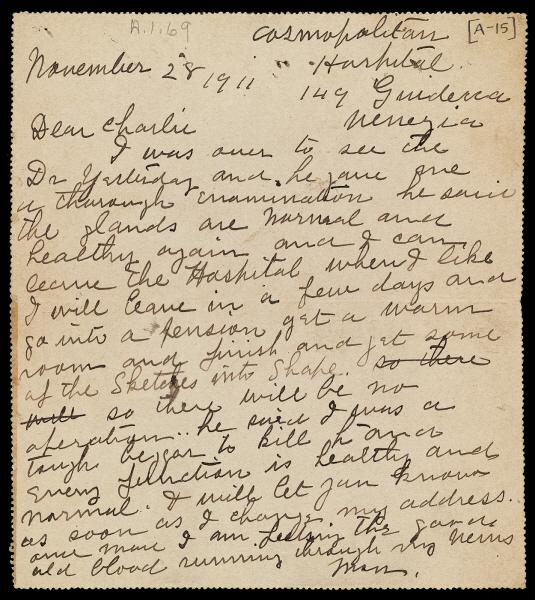 A.1.69
[A-15]
Cosmopolitan
Hospital.
November 28 1911
149 Guidecca
Venezia
Dear Charlie
I was over to see the
Dr yesterday and he gave me
a thorough examination he said
the glands are normal and
healthy again and I can
leave the Hospital when I like
I will leave in a few days and
go into a pension get a warm
room and finish and get some
of the Sketches into Shape. so there
will so there will be no
operation.. he said I was a
tough beggar to kill and
every function is healthy and
normal. I will let you know
as soon as I change my address.
once more I am feeling the good
old blood running through my veins
Maur.